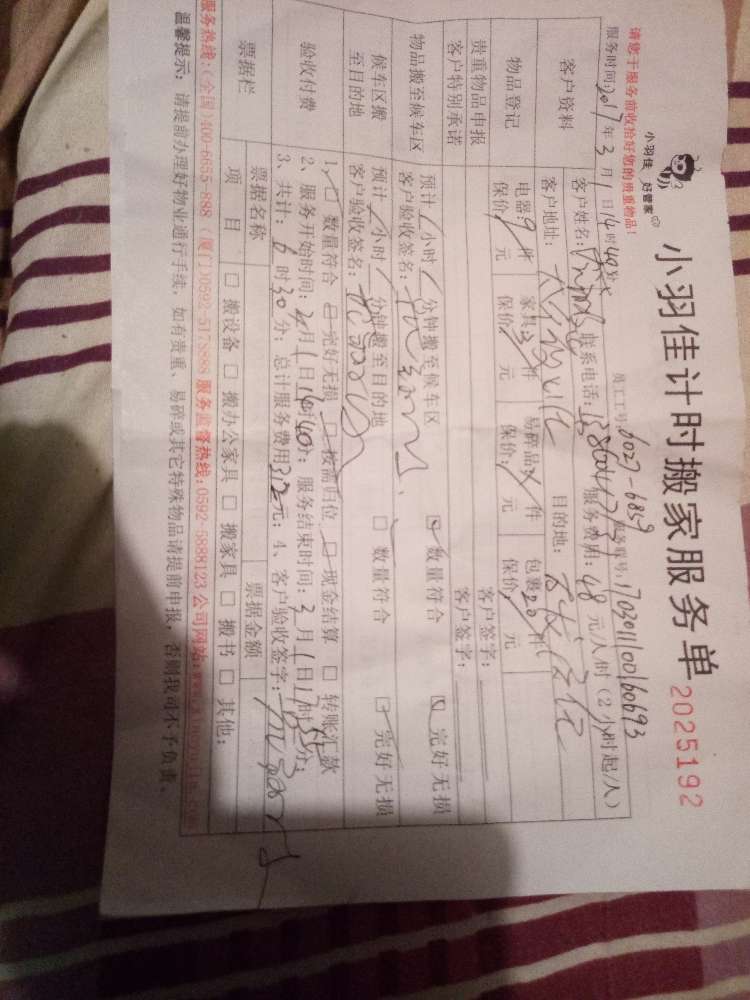 小羽佳 好管家
小羽佳计时搬家服务单 2025192
请您于服务前收拾好您的贵重物品!
员工工号:6027-6859 服务账号:1703011100160693
服务时间:2017年3月1日14时40分 服务费用:48元/人/时(2小时起/人)
客户资料 客户姓名: 联系电话:
客户地址: 目的地:
物品登记 电器:9件 家具:3件 易碎品 件 包裹20件
保价: 元 保价: 元 保价: 元 保价: 元
贵重物品申报 客户签字:
客户特别承诺 客户签字:
物品搬至候车区 预计 小时 分钟搬至候车区 数量符合 完好无损
客户验收签名:
候车区搬至目的地 预计 小时 分钟搬至目的地 数量符合 完好无损
客户验收签名:
验收付费 1、 数量符合 完好无损 按需归位 现金结算 转账汇款
2、服务开始时间:3月1日14时40分; 服务结束时间:3月1日17时 分;
3、共计:6时30分; 总计服务费用312元; 4、客户验收签字:
票据栏 票据名称 票据金额
项目 搬设备 搬办公家具 搬家具 搬书 其他:
服务热线:(全国)400-6655-898 (厦门)0592-5178888 服务监督热线:0592-5888123 公司网站:www.xiaoyujia.com
温馨提示:请提前办理好物业通行手续,如有贵重、易碎或其它特殊物品请提前申报,否则我司不予负责。